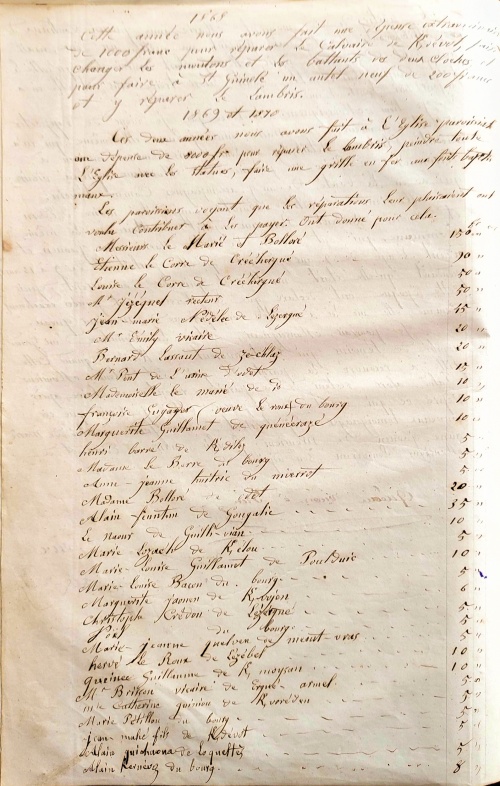 1868
Cette année nous avons fait une dépense extraordinaire
de 1000 franc pour réparer le Calvaire de Kdévot, fait
changer les moutons et les battants des deux cloches et
puis faire à St Guinolé un autel neuf de 200 francs
et y réparer le Lambris.
1869 et 1870
Ces deux années nous avons fait à L'Eglise paroissiale
une dépense de fr pour réparer le Lambris, peindre toute
L'Eglise avec les statues, faire une grille en fer aux fonts baptis
maux.
Les paroissiens voyant que les réparations leur plairaient ont
voulu contribuer à les payer. Ont donné pour cela.
Messieurs le Marié et Bolloré 150
Etienne le Corre de Créhergué 90 "
Louise le Corre de Créhergué 50 "
Mr Jézéquel recteur 50 "
Jean-marie Nédélec de Lezergué 45 "
Mr Emily vicaire 20 "
Bernard Lassaut de 20 "
Mr Pont de L'usine d'odet 15 "
Mademoiselle le marié de do 10 "
françoise (veuve le roux) du bourg 10 "
Marguerite Guillamet de quénéraze 10 "
henri barré de Kdilès 5 "
Madame Le Berre du bourg 5 "
Anne-jeanne huitric du 5 "
Madame Bolloré de odet 20 "
Alain feunteun de 35 "
Le naour de Guilli-vian 10 "
Marie de K/élou 5 "
Marie-Louise Guillamet de Poulduic 10 "
Marie-Louise Bacon du bourg 5 "
Marguerite jaouen de K 6 "
Christophe Krédon de Lézergué 5 "
du bourg 5 "
Marie jeanne quelven de menet-vras 5 "
hervé le Roux de Lézébel 10 "
Guillamet de K/moysan 10 "
Mr Brisson vicaire de Ergué-armel 5 "
Mie Catherine de K/vorédon 5 "
Marie Pétillon du bourg 5 "
jean mahé fils de Kdévot
Alain quichaoua de Loquettes 5 "
Alain Kernevez du bourg. 8 "